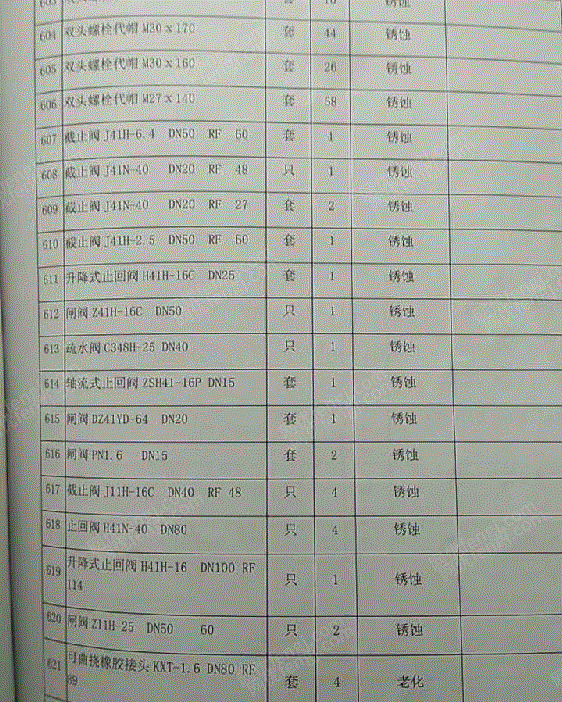 603 双头螺栓代帽 套 16 锈蚀
604 双头螺栓代帽 M30×170 套 44 锈蚀
605 双头螺栓代帽 M30×160 套 26 锈蚀
606 双头螺栓代帽 M27×140 套 58 锈蚀
607 截止阀 J41H-6.4 DN50 RF 60 套 1 锈蚀
608 截止阀 J41N-40 DN20 RF 48 只 1 锈蚀
609 截止阀 J41N-40 DN20 RF 27 套 2 锈蚀
610 截止阀 J41H-2.5 DN50 RF 60 套 1 锈蚀
611 升降式止回阀 H41H-16C DN25 套 1 锈蚀
612 闸阀 Z41H-16C DN50 只 1 锈蚀
613 疏水阀 C348H-25 DN40 只 1 锈蚀
614 轴流式止回阀 ZSH41-16P DN15 套 1 锈蚀
615 闸阀 DZ41YD-64 DN20 套 1 锈蚀
616 闸阀 PN1.6 DN15 套 2 锈蚀
617 截止阀 J11H-16C DN40 RF 48 只 4 锈蚀
618 止回阀 H41N-40 DN80 只 4 锈蚀
619 升降式止回阀 H41H-16 DN100 RF 只 1 锈蚀
114
620 闸阀 Z11H-25 DN50 60 只 2 锈蚀
621 可曲挠橡胶接头 KXT-1.6 DN80 RF 套 4 老化
89